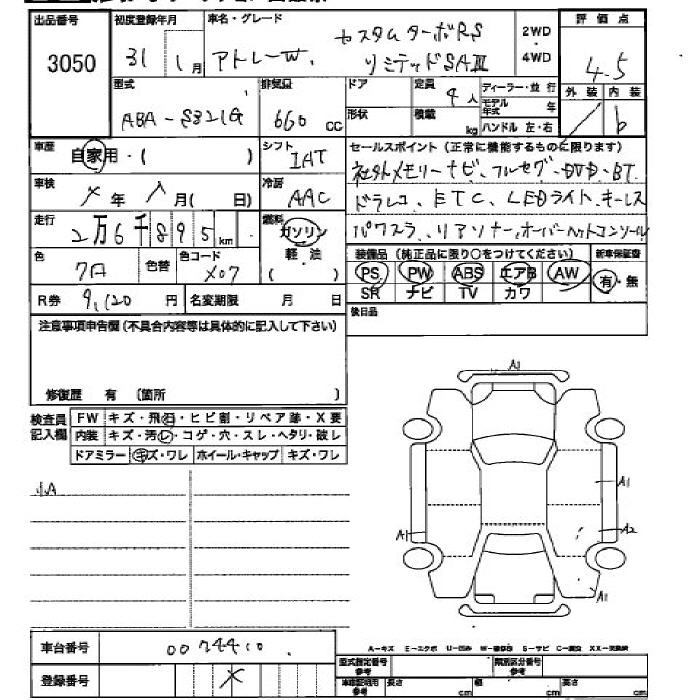 出品番号 初度登録年月 車名・グレード 評価点
3050 31 1月 アトレーW. カスタムターボRS リミテッドSAⅢ 2WD・4WD 4.5
型式 排気量 ドア 定員 ディーラー・並行 外装 内装
ABA-S321G 660cc 4人 モデル年式 年 b
形状 積載 kg ハンドル 左・右
車歴 自家用・( ) シフト IAT セールスポイント(正常に機能するものに限ります)
社外メモリーナビ、フルセグ・DVD・BT
車検 年 月( 日) 冷房 AAC ドラレコ、ETC、LEDライト、キーレス
走行 2万6千895km 燃料 ガソリン パワスラ、リアソナー、オーバーヘットコンソール
軽・油
( )
色 色替 色コード 装備品(純正品に限り○をつけてください) 新車保証書
X07 PS PW ABS エアB AW 有・無
R券 9,120円 名変期限 月 日 SR ナビ TV カワ
注意事項申告欄(不具合内容等は具体的に記入して下さい) 後日品
修復歴 有 (箇所 )
検査員記入欄 FW キズ・飛石・ヒビ割・リペア跡・X要
内装 キズ・汚レ・コゲ・穴・スレ・ヘタリ・破レ
ドアミラー キズ・ワレ ホイール・キャップ キズ・ワレ
A1
A1
A1 A2
A1
車台番号 0074410
A-キズ E-エクボ U-凹み
登録番号 型式指定番号 参考 類別区分番号 参考
車庫証明用 参考 長さ cm 幅 cm 高さ cm